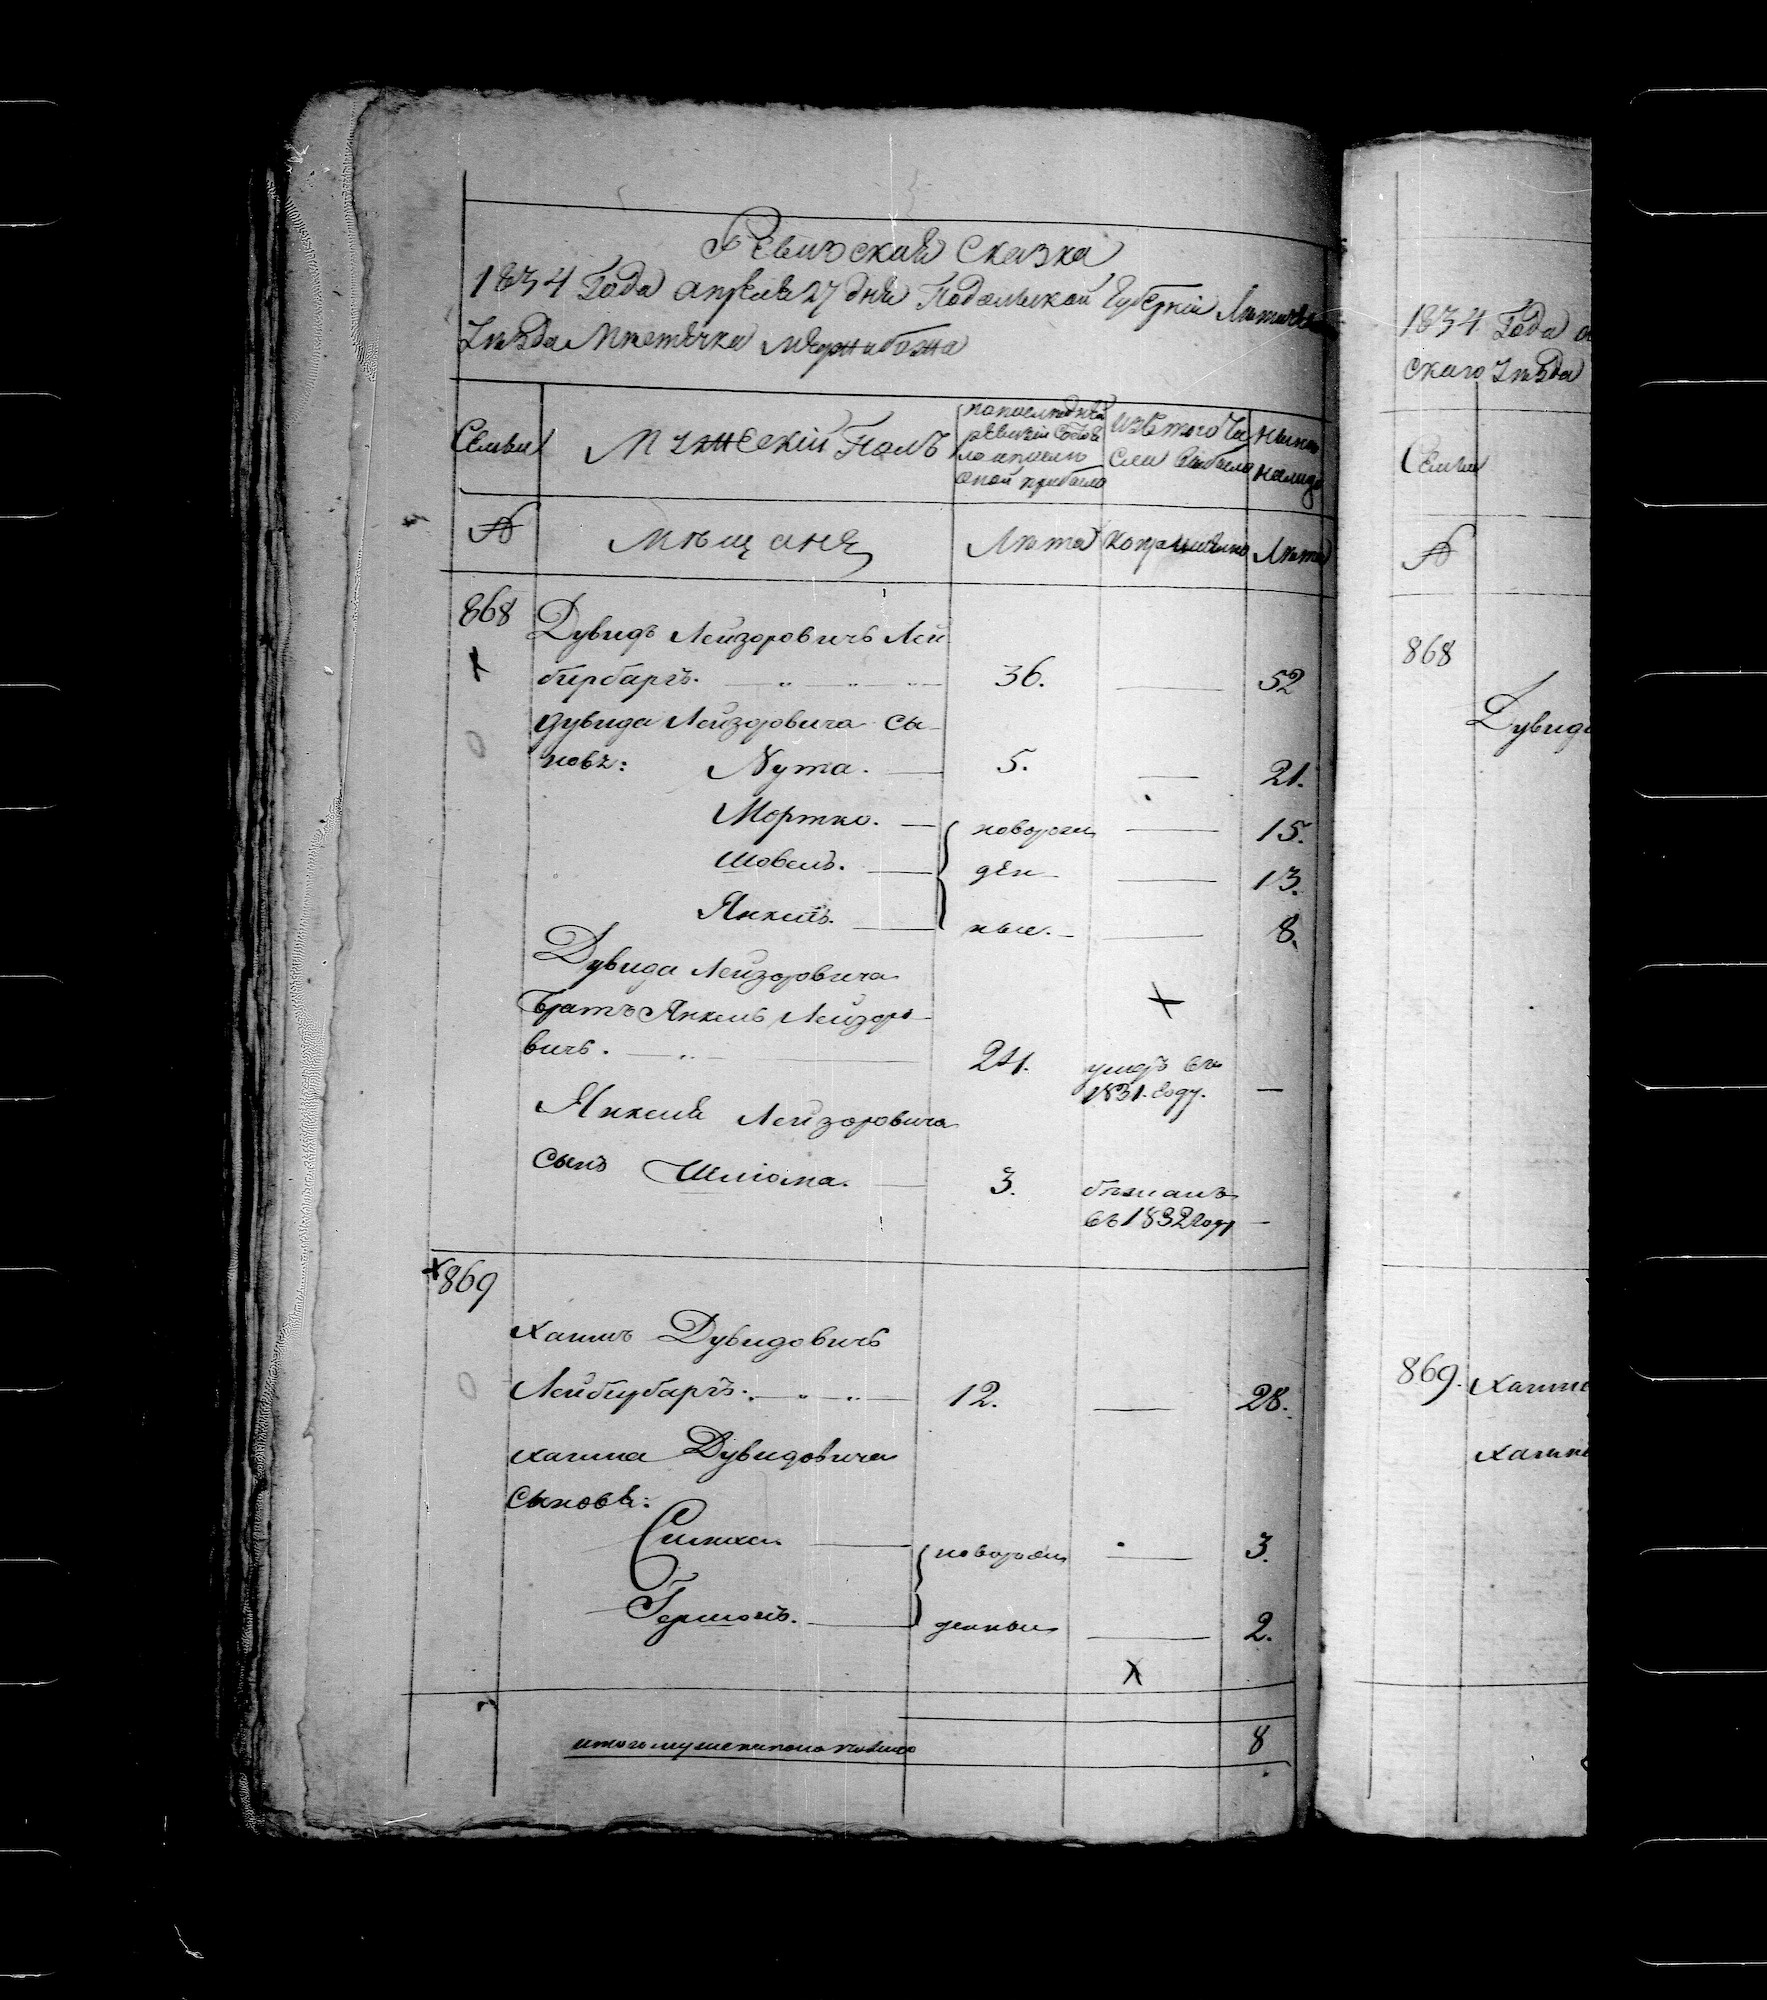 Ревизская Сказка
1834 Года апреля 27 дня Подольской Губернiи
Уѣзда Мѣстечка Меджибожа
Семьи
Мужескiй Полъ
по последней
ревизiи состоя
ло и после
оной прибыло
Изъ того чи
сла выбыло
Ныне
налицо
№
Мѣщане
Лѣта
Когда именно
Лѣта
868
Дувидъ Лейзоровичъ Лей
бирбаргъ. 36. 52
Дувида Лейзоровича сы-
новя: Нута. 5. 21.
Мортко. новорож 15.
Шовель. ден 13.
Янкель. ные. 8.
Дувида Лейзоровича
Братъ Янкель Лейзоро-
вичъ. 24. умеръ въ
1831. году.
Янкеля Лейзоровича
сынъ Шлiома. 3. бѣжалъ
въ 1832 году
869
Хаимъ Дувидовичъ
Лейбирбаргъ. 12. 28.
Хаима Дувидовича
сыновя:
Симха. новорож 3.
Гершонъ. денные 2.
итого мужеска пола налицо 8
1834 Года
скаго Уѣзда
Семьи
№
868
869.